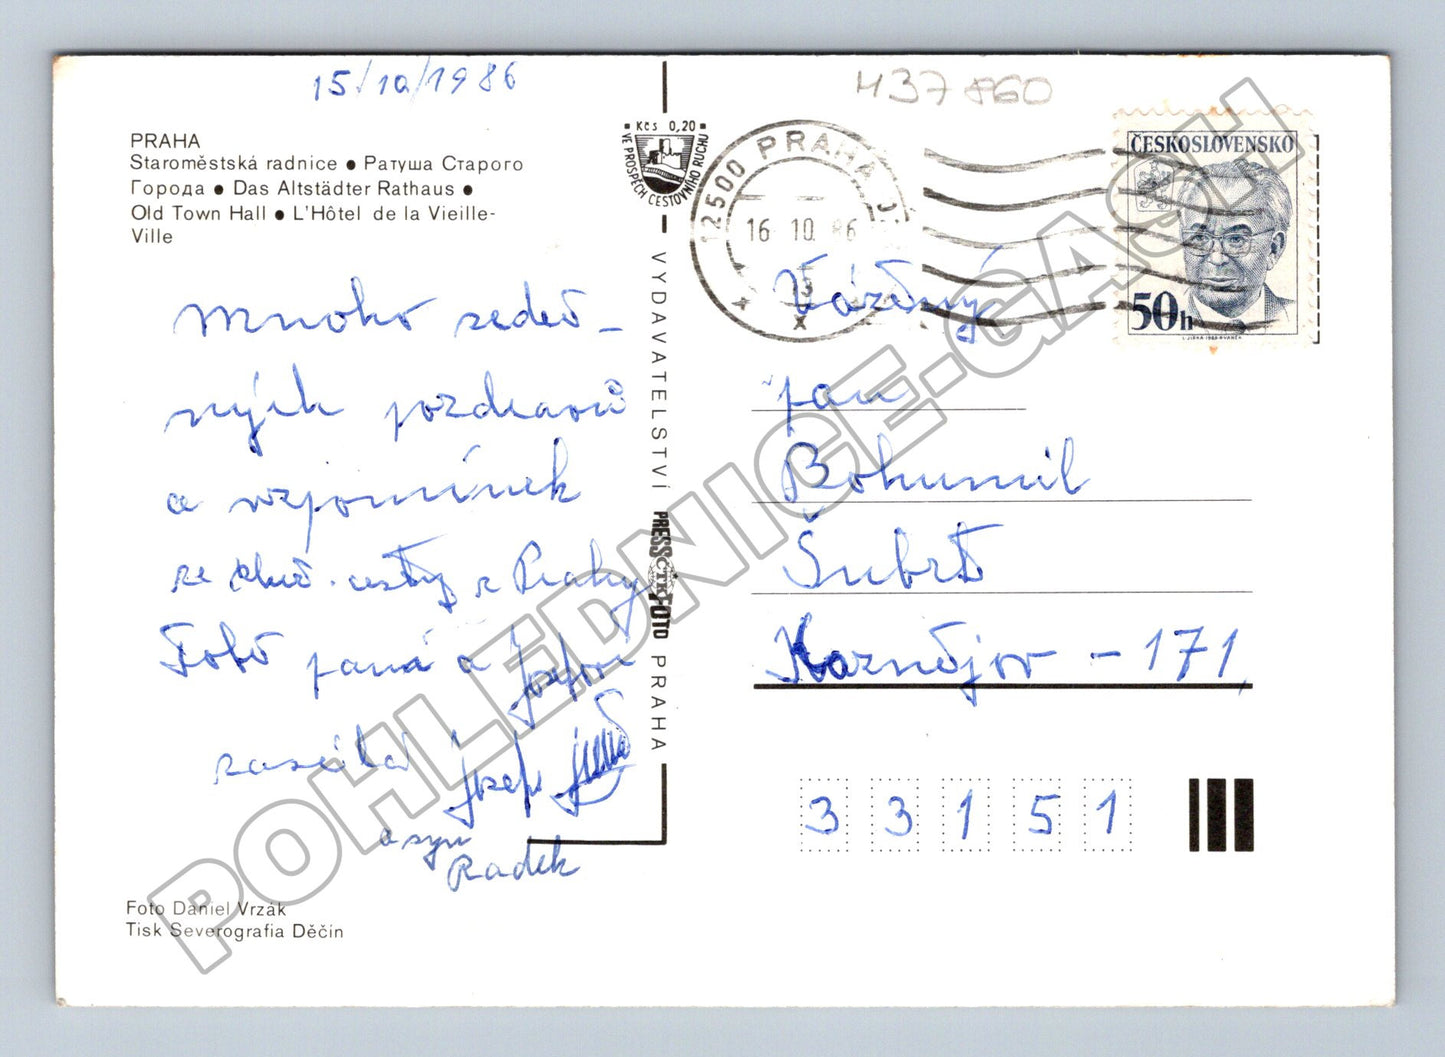 15/10/1986
H37860
PRAHA
Staroměstská radnice ● Ратуша Старого
Города ● Das Altstädter Rathaus ●
Old Town Hall ● L'Hôtel de la Vieille-
Ville
Mnoho srdeč-
ných pozdravů
a vzpomínek
ze služ. cesty z Prahy
Tobě a Josefovi
zasílá Josef
a syn
Radek
Foto Daniel Vrzák
Tisk Severografia Děčín
Kčs 0,20
VE PROSPĚCH CESTOVNÍHO RUCHU
VYDAVATELSTVÍ PRESSFOTO PRAHA
ČTK
12500 PRAHA
16.10.86
ČESKOSLOVENSKO
50h
Vážený
pan
Bohumil
Šubrt
Kaznějov - 171
33151
POHLEDNICE-GASH